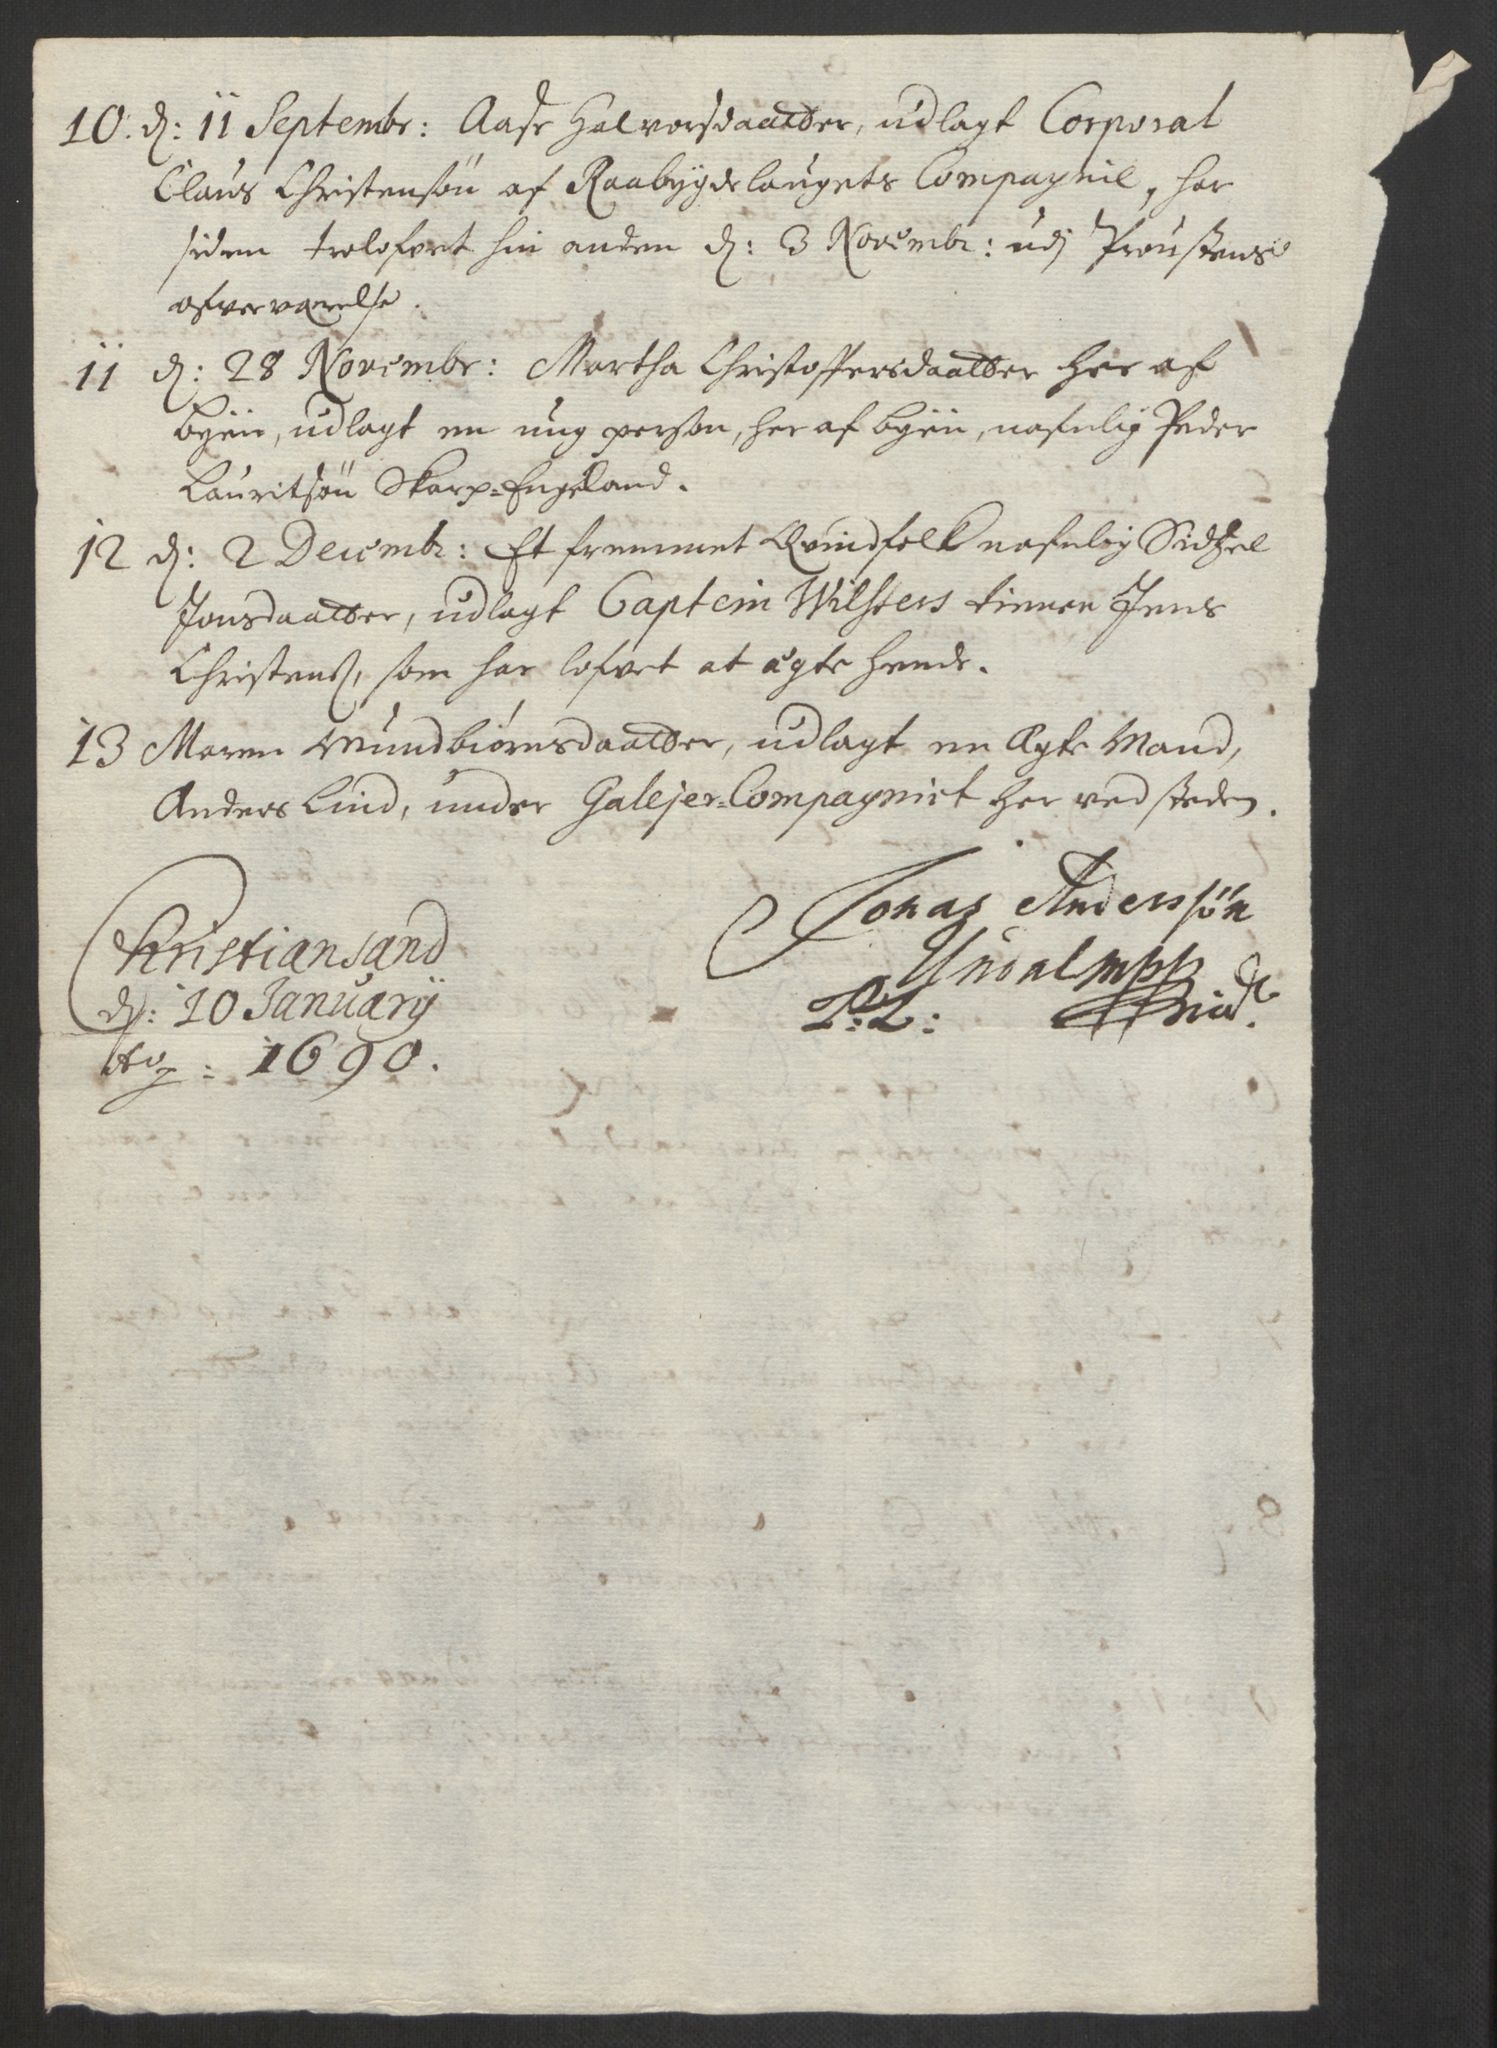 10. d: 11 Septembr: Aase Halvorsdaatter, udlagt Corporal
Claus Christensøn af Raabygdelaugets Compagnie, har
siden trolofvet hin anden d: 3 Novembr: udj Proustens
ofverværelse.
11 d: 28 Novembr: Martha Christoffersdaatter her af
byen, udlagt en ung person, her af byen, nafnlig Peder
Lauritsøn Skarp=Engeland.
12 d: 2 Decembr: Et fremmet Qvindfolk nafnlig Sidzel
Jonsdaatter, udlagt Captein Wilsters tienner Jens
Christens, som har lofvet at ægte hende.
13 Maren Gundbiørnsdaatter, udlagt en Ægte Mand,
Anders Lind, under Galejer=Compagniet her ved steden.
Christiansand
d: 10 Januarij
Ao: 1690.
Jonas Anderssøn